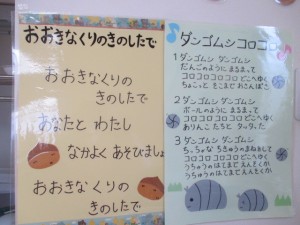 おおきなくりのきのしたで
おおきなくりの
きのしたで
あなたと わたし
なかよく あそびましょ
おおきなくりの
きのしたで
ダンゴムシコロコロ
1 ダンゴムシ ダンゴムシ
だんごのように まるまって
コロコロコロコロ どこへゆく
ちょこっと そこまで おさんぽに
2 ダンゴムシ ダンゴムシ
ボールのように まるまって
コロコロコロコロ どこへゆく
ありんこ たちと
3 ダンゴムシ ダンゴムシ
ちっちゃな ちきゅうの まねをして
コロコロコロコロ どこへゆく
うちゅうの はてまで えんえんと
うちゅうの はてまで えんえんと